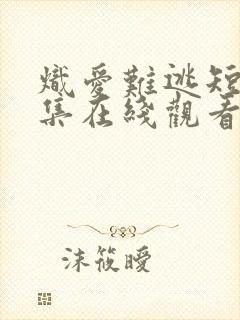 熾愛難逃短
集在綫觀看
沫筱曖